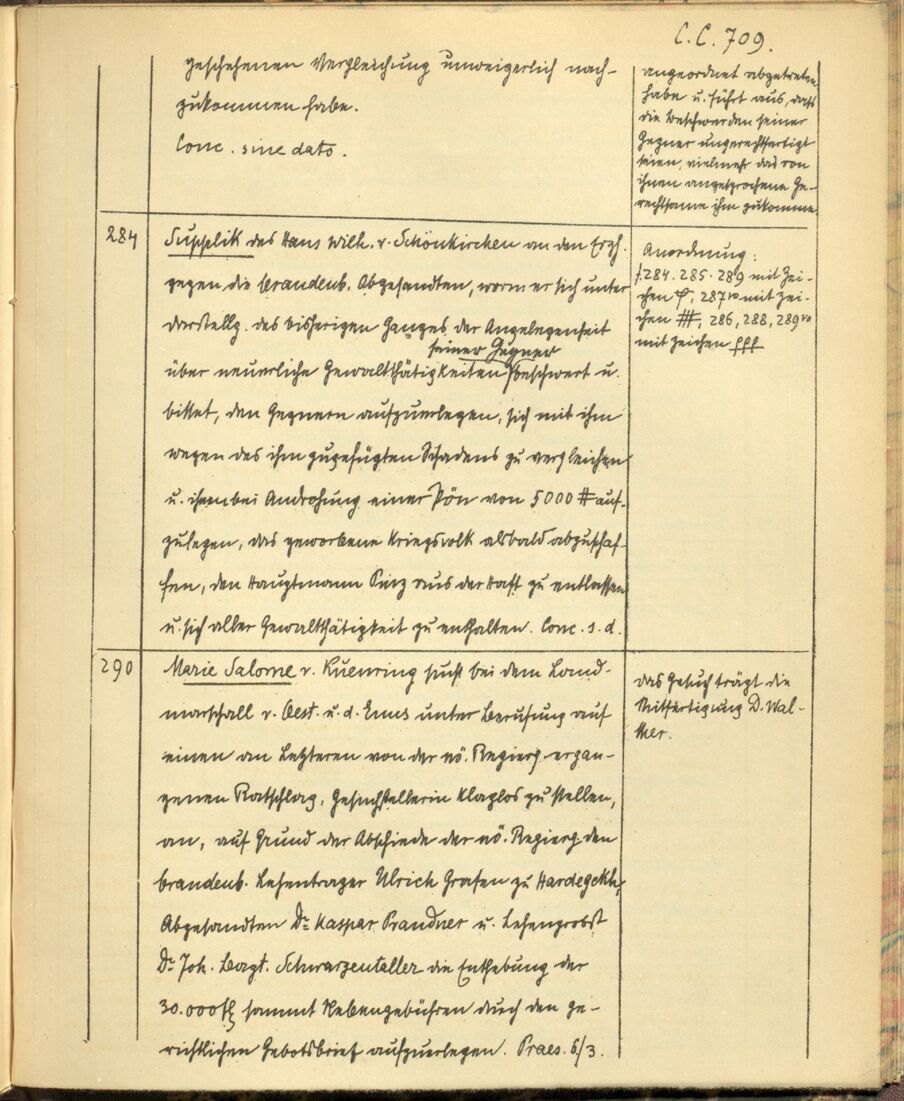 C. C. 709.
geschehenen Vergleichung unweigerlich nach-
zukommen habe.
Conc. sine dato.
angeordnet abgetreten
habe u. führt aus, daß
die Beschwerden seiner
Gegner ungerechtfertigt
seien, vielmehr das von
ihnen angesprochene Ge-
rechtsame ihm zukomme.
284
Supplik des Hans Wilh. v. Schönkirchen an den Erzh.
gegen die brandenb. Abgesandten, worin er sich unter
Darstellg. des bisherigen Ganges der Angelegenheit
seiner Gegner
über neuerliche Gewaltthätigkeiten beschwert u.
bittet, den Gegnern aufzuerlegen, sich mit ihm
wegen des ihm zugefügten Schadens zu vergleichen
u. ihnen bei Androhung einer Pön von 5000 # auf-
zulegen, das geworbene Kriegsvolk alsbald abzuschaf-
fen, den Hauptmann aus der Haft zu entlassen
u. sich aller Gewaltthätigkeit zu enthalten. Conc. s. d.
Anordnung:
f. 284. 285. 289 mit Zei-
chen 287 vo mit Zei-
chen #, 286, 288, 289 vo
mit Zeichen fff
290
Marie Salome v. Kuenring sucht bei dem Land-
marschall v. Oest. u. d. Enns unter Berufung auf
einen an Letzteren von der nö. Regierg. ergan-
genen Ratschlag, Gesuchstellerin klaglos zu stellen,
an, auf Grund der Abschiede der nö. Regierg. den
brandenb. Lehentrager Ulrich Grafen zu Hardegckh,
Abgesandten Dr. Kaspar Prandner u. Lehenprobst
Dr. Joh. Bapt. Schwarzentaller die Enthebung der
30.000 fl sammt Nebengebühren durch den ge-
richtlichen Gebotsbrief aufzuerlegen. Praes. 6/3.
Das Gesuch trägt die
Mitfertigung D. Wal-
ther.